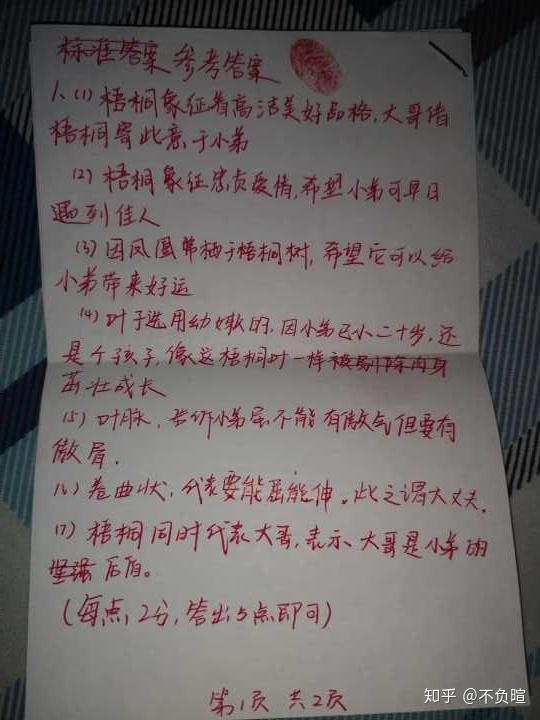 标准答案 参考答案
1、(1) 梧桐象征着高洁美好品格,大哥借
梧桐寄此意于小弟
(2) 梧桐象征忠贞爱情,希望小弟可早日
遇到佳人
(3) 因凤凰常栖于梧桐树,希望它可以给
小弟带来好运
(4) 叶子选用幼嫩的,因小弟还小二十岁,还
是个孩子,像这梧桐叶一样
茁壮成长
(5) 叶脉,告诉小弟虽不能有傲气但要有
傲骨.
(6) 卷曲状,代表要能屈能伸。此之谓大丈夫.
(7) 梧桐同时代表大哥,表示大哥是小弟的
坚强后盾。
(每点2分,答出5点即可)
第1页 共2页
知乎 @不负暄